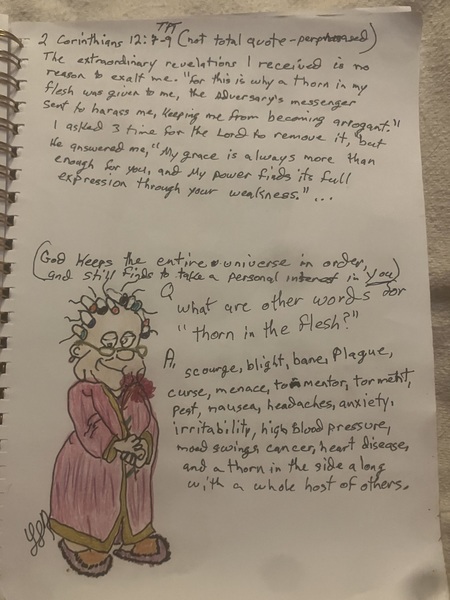 TPT
2 Corinthians 12:7-9 (not total quote-perphrased)
The extraordinary revelations I received is no
reason to exalt me. "for this is why a thorn in my
flesh was given to me, the adversary's messenger
sent to harass me, keeping me from becoming arrogant."
I asked 3 time for the Lord to remove it, but
He answered me, "My grace is always more than
enough for you, and My power finds its full
expression through your weakness." ...
(God keeps the entire universe in order,
and still finds to take a personal interest in you)
Q what are other words for
"thorn in the flesh?"
A, scourge, blight, bane, Plague,
curse, menace, tormentor, torment,
pest, nausea, headaches, anxiety,
irritability, high Blood pressure,
mood swings, cancer, heart disease,
and a thorn in the side along
with a whole host of others.